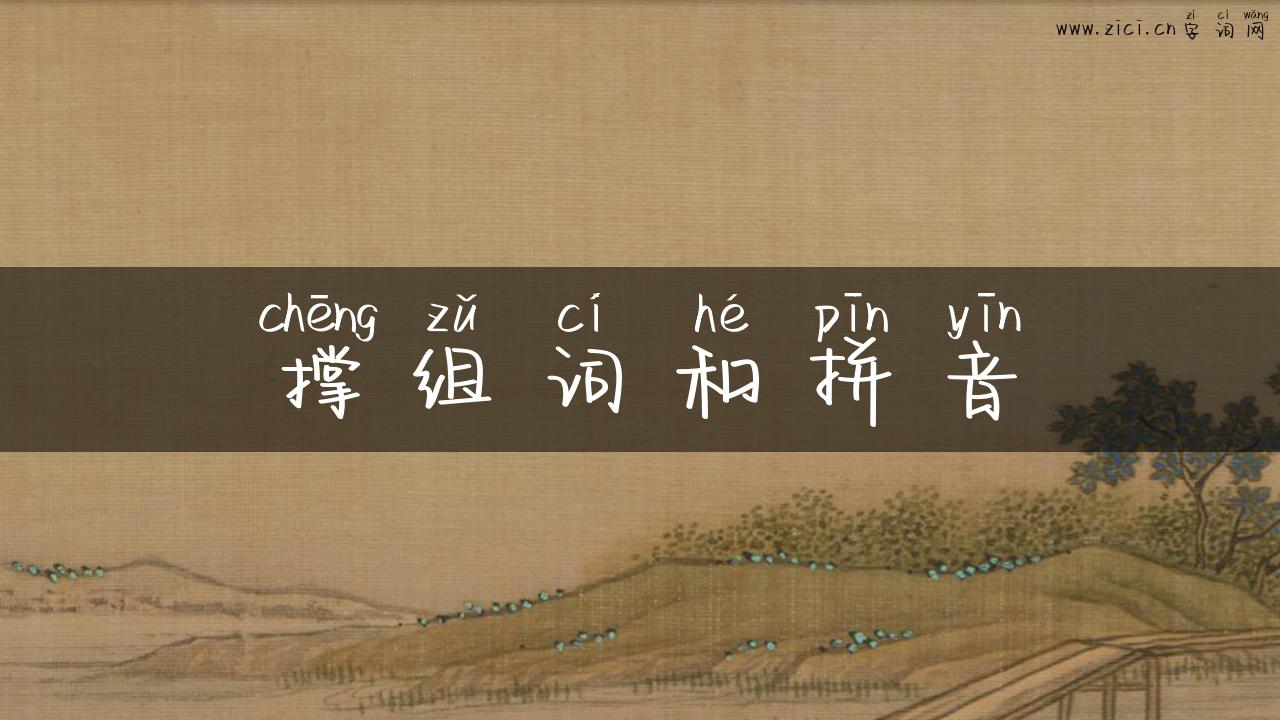 zì cí wǎng
www.zici.cn字词网
chēng zǔ cí hé pīn yīn
撑组词和拼音